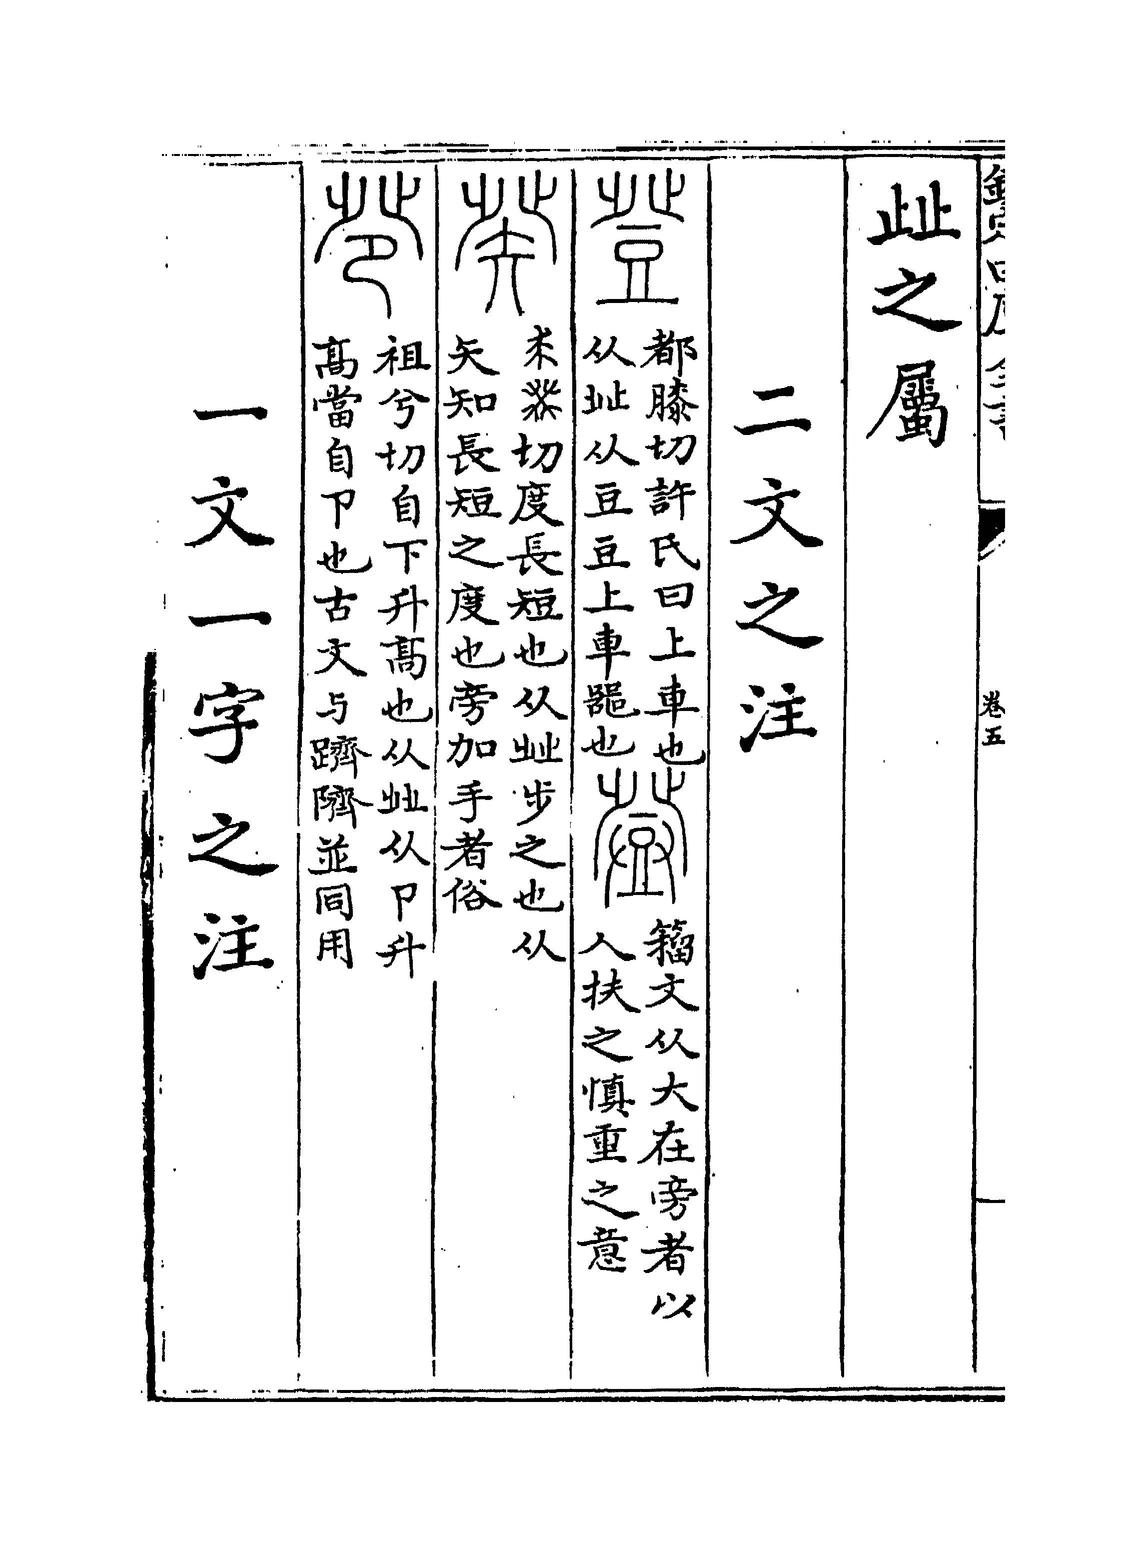 欽定四庫全書
卷五
𣥠之屬
二文之注
都膝切許氏曰上車也
从𣥠从豆豆上車器也
籀文从大在旁者以
人扶之慎重之意
切度長短也从𣥠步之也从
矢知長短之度也旁加手者俗
祖兮切自下升髙也从𣥠从卪升
髙當自卪也古文与躋隮並同用
一文一字之注